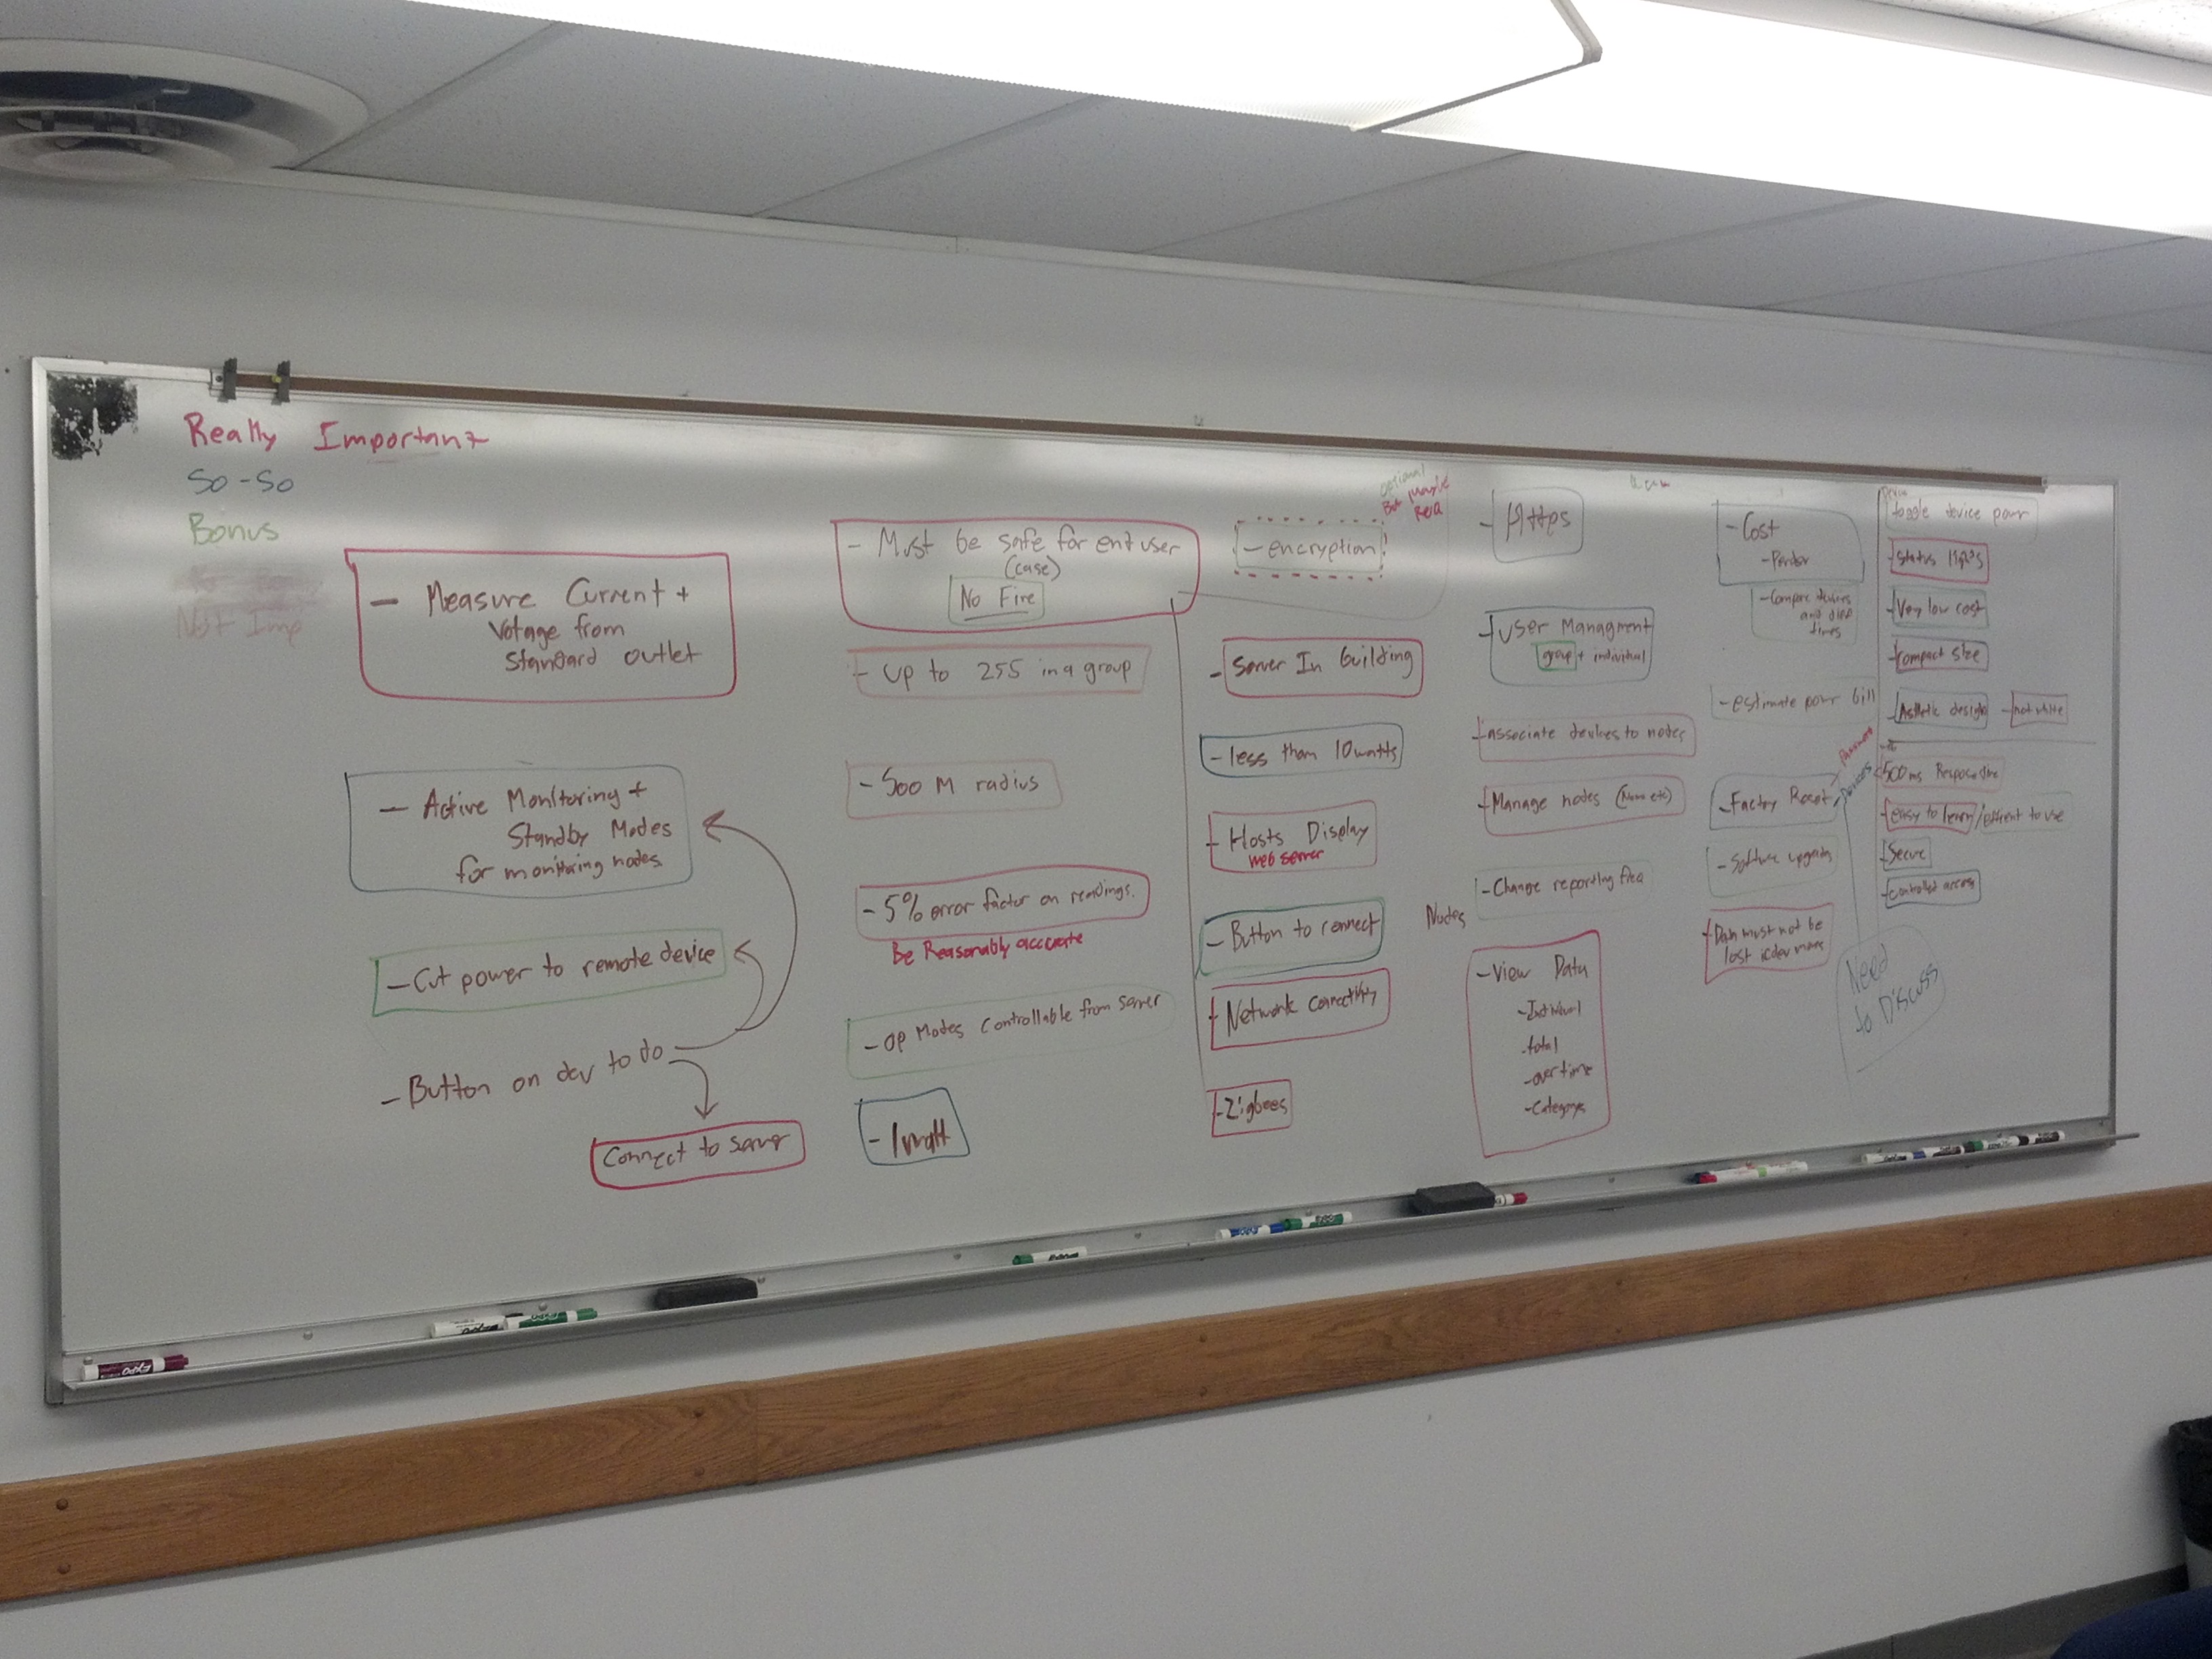 Really Important
So-So
Bonus
Not Imp
- Measure Current +
Votage from
Standard outlet
- Active Monitoring +
Standby Modes
for monitoring nodes
- Cut power to remote device
- Button on dev to do
Connect to server
- Must be safe for enduser
(case)
No Fire
- Up to 255 in a group
- 500 M radius
- 5% error factor on readings.
Be Reasonably accurate
- OP Modes Controllable from server
- 1 watt
optional
But maybe
- encryption
- Server In Building
- less than 10 watts
- Hosts Display
web server
- Button to connect
- Network Connectivity
- Zigbees
- Https
- User Managment
group + individual
- associate devices to nodes
- Manage nodes (Name etc)
- Change reporting freq
Nodes
- View Data
- Individual
- total
- over time
- Category
- Cost
- Compare devices
and diff
times
- estimate powr bill
- Factory Reset
- Software upgrades
- Data must not be
lost
Need
to Discuss
toggle device powr
- Status
- Very low cost
- Compact size
- Asthetic design
- not white
500 ms Response time
- easy to learn / effient to use
- Secure
- Controlled access